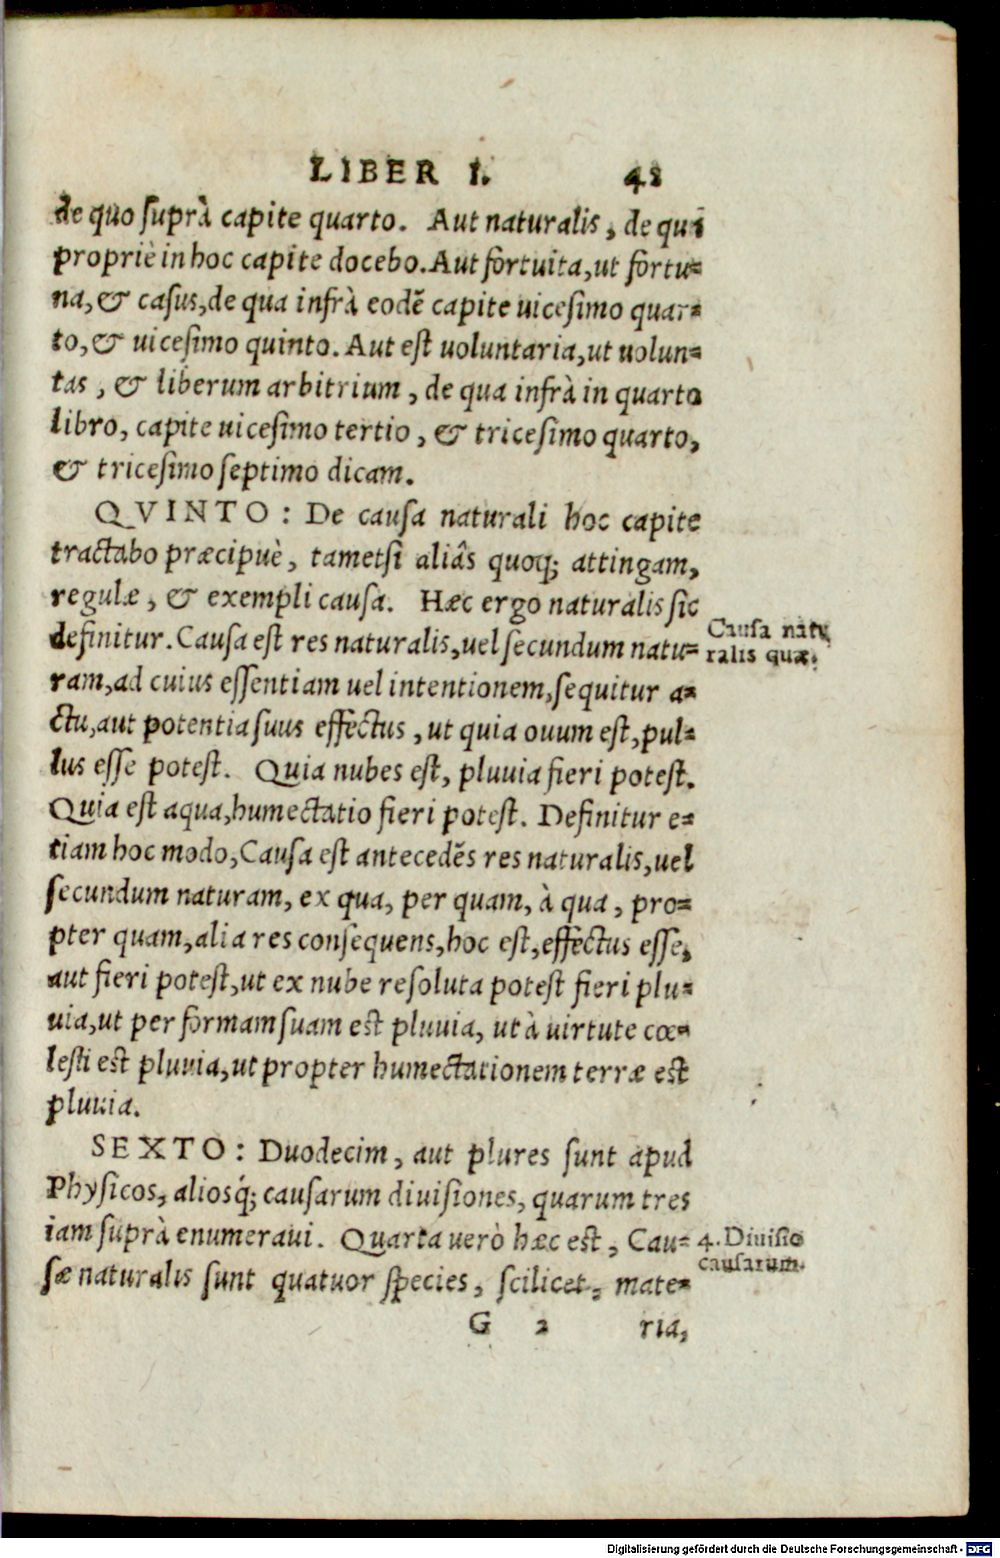 LIBER I. 42
de quo suprà capite quarto. Aut naturalis, de qua
propriè in hoc capite docebo. Aut fortuita, ut fortu-
na, & casus, de qua infrà eodē capite uicesimo quar-
to, & uicesimo quinto. Aut est uoluntaria, ut uolun-
tas, & liberum arbitrium, de qua infrà in quarto
libro, capite uicesimo tertio, & tricesimo quarto,
& tricesimo septimo dicam.
QVINTO: De causa naturali hoc capite
tractabo præcipuè, tametsi aliâs quoq; attingam,
regulæ, & exempli causa. Hæc ergo naturalis sic
definitur. Causa est res naturalis, uel secundum natu-
Causa natu
ralis quæ.
ram, ad cuius essentiam uel intentionem, sequitur a-
ctu, aut potentia suus effectus, ut quia ouum est, pul-
lus esse potest. Quia nubes est, pluuia fieri potest.
Quia est aqua, humectatio fieri potest. Definitur e-
tiam hoc modo, Causa est antecedēs res naturalis, uel
secundum naturam, ex qua, per quam, à qua, pro-
pter quam, alia res consequens, hoc est, effectus esse,
aut fieri potest, ut ex nube resoluta potest fieri plu-
uia, ut per formam suam est pluuia, ut à uirtute cœ-
lesti est pluuia, ut propter humectationem terræ est
pluuia.
SEXTO: Duodecim, aut plures sunt apud
Physicos, aliosq́; causarum diuisiones, quarum tres
iam suprà enumeraui. Quarta uerò hæc est, Cau-
4. Diuisio
causarum.
sæ naturalis sunt quatuor species, scilicet, mate-
G 2 ria,
Digitalisierung gefördert durch die Deutsche Forschungsgemeinschaft - DFG